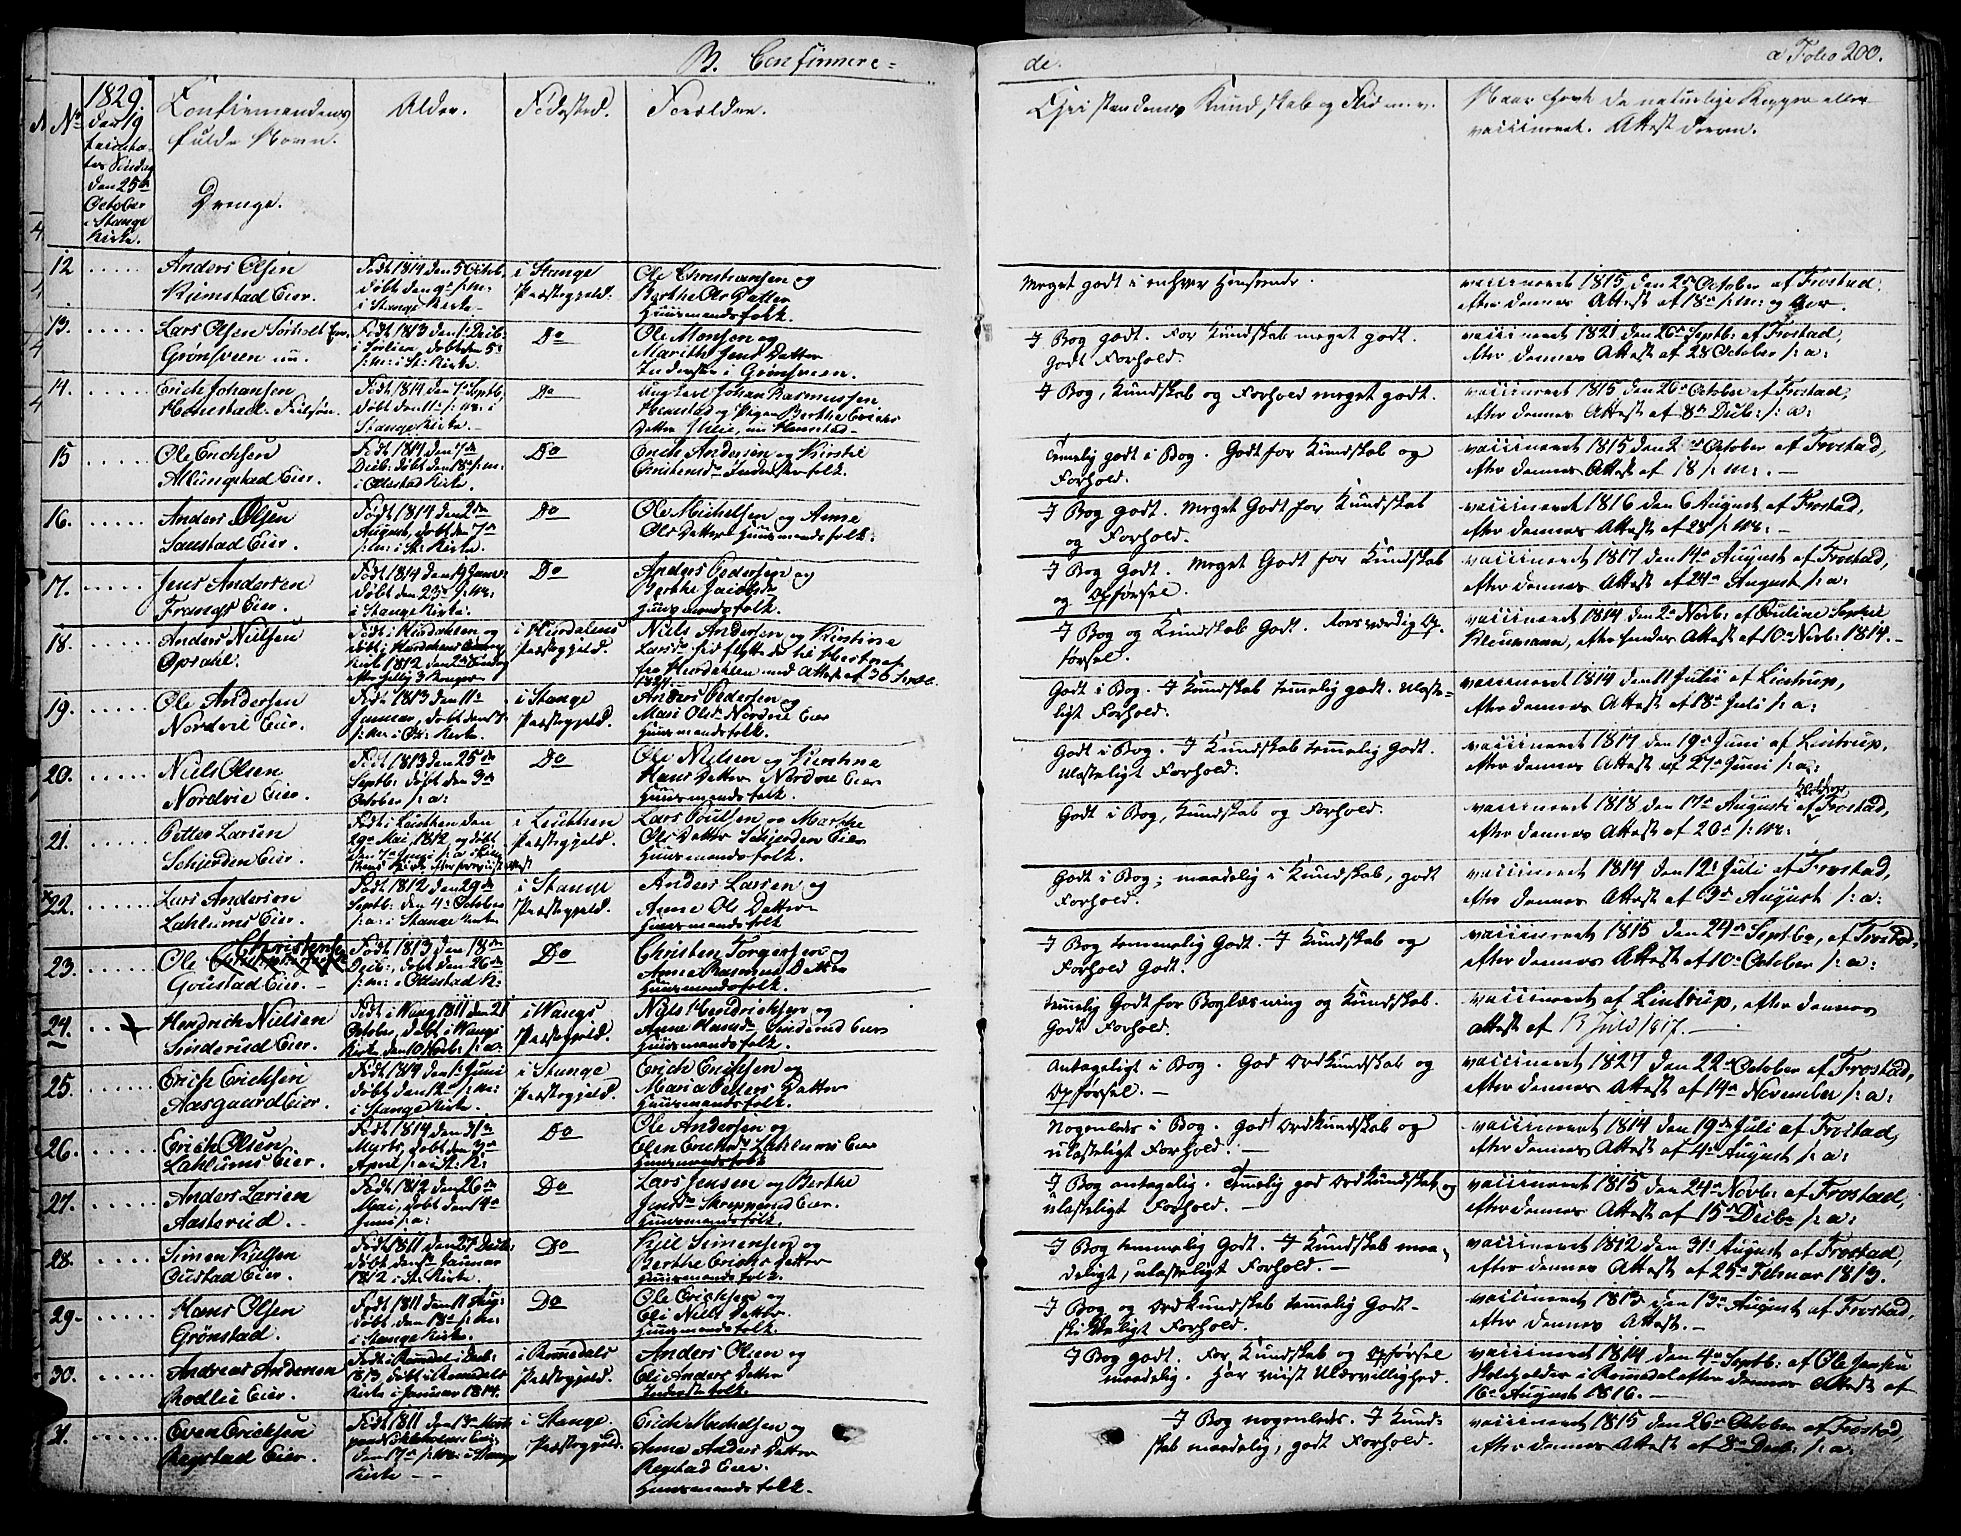 B. Confirmere=
de.
a Folio 200.
No
1829.
den 19
trinita-
tis Søndag
den 25de
October
i Stange
Kirke.
Confirmandens
fulde Navn.
Drenge.
Alder.
Fødested.
Forældre.
Christendoms Kundskab og Flid m. v.
Naar havt de naturlige Kopper eller
vaccineret. Attest derom.
12
Anders Olsen
Rumstad Eier.
Født 1814 den 5 Octob.
døbt den 9de s: m:
i Stange Kirke
i Stange
Præstegjeld.
Ole Christiansen og
Berthe Ols Datter
Huusmandsfolk.
Meget godt i enhver Henseende.
vaccineret 1815 den 2de October af Frostad,
efter dennes Attest af 18de s: m: og Aar.
13.
Lars Olsen
Grønsveen
Født 1813 den
døbt den 5te
s: m: i St: Kirke
Do
Ole Monsen og
Marithe Jens Datter
Inderster i Grønsveen.
I Bog godt. For Kundskab meget godt.
Godt Forhold.
vaccineret 1821 den 26de Septb: af Frostad,
efter dennes Attest af 28 October s: a:
14.
Erich Johansen
Født 1814 den 7de Septb,
døbt den 11te s: m: i
Stange Kirke.
Do
Ungkarl Johan Rasmussen
og Pigen Berthe Erichs
Datter
I Bog, Kundskab og Forhold meget godt.
vaccineret 1815 den 26de October af Frostad,
efter dennes Attest af 8de Decb: s: a:
15
Ole Erichsen
Allungstad Eier.
Født 1814 den 7de
Decb: døbt den 18de s: m:
i Ottestad Kirke.
Do
Erich Andersen og Kirstie
Inderstfolk.
Temelig godt i Bog. Godt for Kundskab og
Forhold.
vaccineret 1815 den 2den October af Frostad,
efter dennes Attest af 18 s: m: . -
16.
Anders Olsen
Saustad Eier.
Født 1814 den 2den
August, døbt den 7de
s: m: i St: Kirke.
Do
Ole Michelsen og Anne
Ols Datter Huusmandsfolk.
I Bog godt. Meget Godt for Kundskab
og Forhold.
vaccineret 1816 den 6 August af Frostad,
efter dennes Attest af 28 s: m: -
17.
Jens Andersen
Frangs Eier.
Født 1814 den 19 Janr:
døbt den 23de s: m:
i Stange Kirke.
Do
Anders Pedersen og
Berthe Jacobsd
Huusmandsfolk.
I Bog Godt. Meget Godt for Kundskab
og Opførsel.
vaccineret 1817 den 14de August af Frostad,
efter dennes Attest af 24de August s: a:
18.
Anders Nielsen
Opsahl.
Født i Hurdahlen og
døbt i Hurdahlens
Kirke 1812 den 2den Søndag
efter hellig 3 Konger
i Hurdalens
Præstegjeld.
Niels Andersen og Kirstine
Larsdr hidflyttede til
fra Hurdahlen med Attest af
1827.
I Bog og Kundskab Godt. Roesværdig Op-
førsel.
vaccineret 1814 den 2de Novb: af Pauline Sophie
Neumann, efter hendes Attest af 10de Novb: 1814. -
19.
Ole Andersen
Nordvie Eier.
Født 1813 den 11te
Januar, døbt den
s: m: i Ot: Kirke.
i Stange
Præstegjeld.
Anders Pedersen og
Mari Olsd Nordvie Eier
Huusmandsfolk.
Godt i Bog. I Kundskab temmelig godt. Ulaste-
ligt Forhold.
vaccineret 1814 den 11 Julii af Lintrup,
efter dennes Attest af 18de Juli s: a:
20.
Niels Olsen
Nordvie Eier.
Født 1813 den 25de
Septb: døbt den 3de
October s: a:
Do
Ole Nielsen og Kirstine
Hans Datter Nordvie Eier
Huusmandsfolk.
Godt i Bog. I Kundskab temmelig Godt.
Ulasteligt Forhold.
vaccineret 1817 den 19de Juni af Lintrup,
efter dennes Attest af 27de Juni s: a:
21.
Petter Larsen
Schjerden Eier.
Født i Leuthen den
29de Mai, 1812, og døbt
i Leuthen
Præstegjeld.
Lars Poulsen og Marthe
Ols Datter Schjerden Eier
Huusmandsfolk.
Godt i Bog, Kundskab og Forhold.
vaccineret 1818 den 17de August af Klokker Frostad,
efter dennes Attest af 20de s: m:
22.
Lars Andersen
Lahlums Eier.
Født 1812 den 29de
Septb: den 4de October
s: a: i Stange Kirke
i Stange
Præstegjeld.
Anders Larsen og
Anne Ols Datter
Huusmandsfolk
Godt i Bog; maadelig i Kundskab, godt
Forhold.
vaccineret 1814 den 12te Juli af Frostad,
efter dennes Attest af 3de August s: a:
23.
Ole Christensen
Gustad Eier. -
Født 1813 den 18de
Decb:, døbt den 26de
s: m: i Ottestad K:
Do
Christen Torgersen og
Anne Rasmus Datter
Huusmandsfolk.
I Bog temmelig Godt. I Kundskab og
Forhold Godt.
vaccineret 1815 den 29de Septbr, af Frostad,
efter dennes Attest af 10de October s: a:
24.
Hendrich Nielsen
Sinderud Eier.
Født i Wang 1811 den 21
October, døbt i Wangs
Kirke den 10 Novb: s: a:
i Wangs
Præstegjeld.
Niels Hendrichsen og
Anne Hansdr Sinderud Eier
Huusmandsfolk.
temelig Godt for Boglæsning og Kundskab.
Godt Forhold.
vaccineret af Lintrup, efter dennes
Attest af 13 Juli 1817. -
25.
Erich Erichsen
Aasgaard Eier.
Født 1814 den 1ste Juni
døbt den 12te s: m:
i Stange Kirke.
i Stange
Præstegjeld.
Erich Erichsen og
Maria Petters Datter
Huusmandsfolk.
Antageligt i Bog. God Ordkundskab og
Opførsel. -
vaccineret 1827 den 22de October af Frostad,
efter dennes Attest af 14de November s: a:
26.
Erich Olsen
Lahlums Eier.
Født 1814 den 31te
Marts, døbt den 3de
April s: a: i St: K:
Do
Ole Andersen og
Elen Ericksdr Lahlums Eier
Huusmandsfolk
Nogenleds i Bog. God Ordkundskab og
ulasteligt Forhold. -
vaccineret 1814 den 19de Juli af Frostad,
efter dennes Attest af 4de August s: a:
27.
Anders Larsen
Aasterud.
Født 1812 den 26de
Mai, døbt den 14de
Juni s: a:
Do
Lars Jensen og Berthe
Jensdr Skrepperud Eier.
Huusmandsfolk.
I Bog antagelig. Temelig god Ordkundskab og
ulasteligt Forhold. -
vaccineret 1815 den 24de Novb: af Frostad,
efter dennes Attest af 15de Decbr s: a:
28.
Simen Kielsen
Gustad Eier.
Født 1811 den 27 Decb:
døbt den Januar
1812 i St: Kirke.
Do
Kiel Simensen og
Berthe Erichs Datter
Huusmandsfolk.
I Bog temmelig Godt. I Kundskab maa-
deligt, ulasteligt Forhold. -
vaccineret 1812 den 31te August af Frostad,
efter dennes Attest af 25de Februar 1813.
29.
Hans Olsen
Grønstad.
Født 1811 den 11 Aug:
døbt den 18de s: m:
i Stange Kirke.
Do
Ole Erichsen og
Eli Niels Datter
Huusmandsfolk.
I Bog og Ordkundskab temmelig Godt-
skikkeligt Forhold.
vaccineret 1813 den 13de August af Frostad,
efter dennes Attest. -
30.
Andreas Andersen
Rodlie Eier.
Født i Romedal i Decb:
1813, døbt i Romedals
Kirke i Januar 1814.
i Romedals
Præstegjeld.
Anders Olsen og
Eli Anders Datter
Inderstfolk.
I Bog godt. For Kundskab og Opførsel
maadelig. Har viist Ulærvillighed.
vaccineret 1814 den 4de Septb: af Ole Jensen
Skoleholder i Romedal efter dennes Attest af
16de August 1816. -
31.
Even Erichsen
Regstad Eier.
Født 1811 den 13de Marts
den 17de s: m: i Stange
Kirke - -
i Stange
Præstegjeld.
Erich Michelsen og
Anne Anders Datter
Regstad Eier.
Huusmandsfolk.
I Bog nogenleds. I Kund-
skab maadelig, godt Forhold.
vaccineret 1815 den 26de October af Frostad,
efter dennes Attest af 8de Decb: s: a: